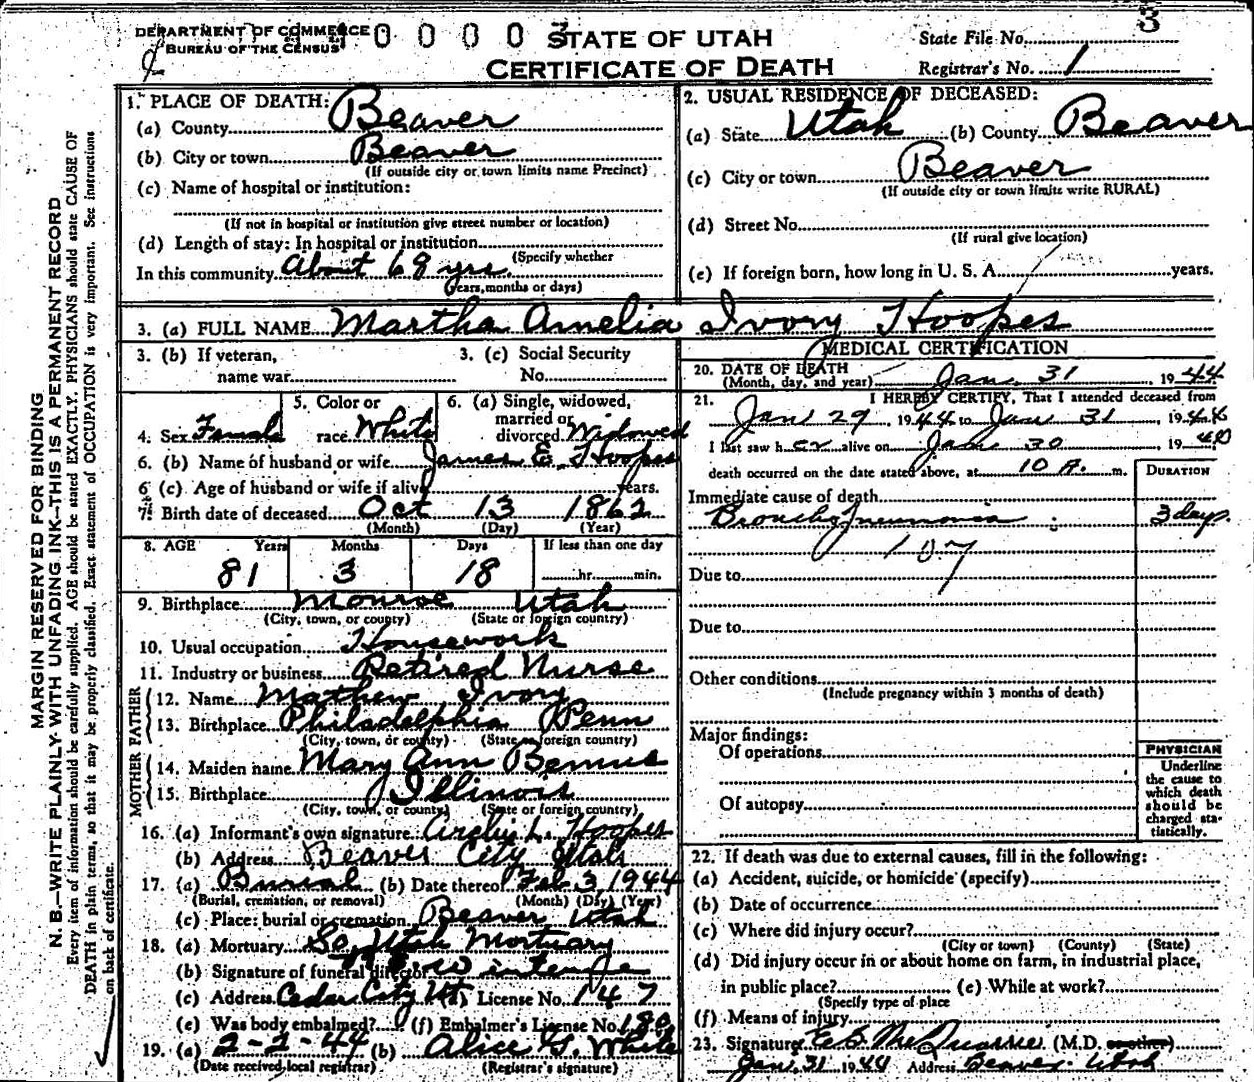 DEPARTMENT OF COMMERCE
BUREAU OF THE CENSUS
0 0 0 0 3
STATE OF UTAH
CERTIFICATE OF DEATH
3
State File No.
Registrar's No. 1
MARGIN RESERVED FOR BINDING
N. B.—WRITE PLAINLY WITH UNFADING INK—THIS IS A PERMANENT RECORD
Every item of information should be carefully supplied. AGE should be stated EXACTLY. PHYSICIANS should state CAUSE OF
DEATH in plain terms, so that it may be properly classified. Exact statement of OCCUPATION is very important. See instructions
on back of certificate.
1. PLACE OF DEATH:
(a) County Beaver
(b) City or town Beaver
(If outside city or town limits name Precinct)
(c) Name of hospital or institution:
(If not in hospital or institution give street number or location)
(d) Length of stay: In hospital or institution
(Specify whether
In this community About 68 yrs.
years, months or days)
2. USUAL RESIDENCE OF DECEASED:
(a) State Utah (b) County Beaver
(c) City or town Beaver
(If outside city or town limits write RURAL)
(d) Street No.
(If rural give location)
(e) If foreign born, how long in U. S. A. years.
3. (a) FULL NAME Martha Amelia Ivory Hoopes
3. (b) If veteran,
name war
3. (c) Social Security
No.
4. Sex Female
5. Color or
race White
6. (a) Single, widowed,
married or
divorced Widowed
6. (b) Name of husband or wife James E. Hoopes
6 (c) Age of husband or wife if alive years.
7. Birth date of deceased Oct 13 1862
(Month) (Day) (Year)
8. AGE Years Months Days If less than one day
81 3 18 hr. min.
9. Birthplace Monroe Utah
(City, town, or county) (State or foreign country)
10. Usual occupation Housework
11. Industry or business Retired Nurse
FATHER
12. Name Mathew Ivory
13. Birthplace Philadelphia Penn
(City, town, or county) (State or foreign country)
MOTHER
14. Maiden name Mary Ann Bemus
15. Birthplace Illinois
(City, town, or county) (State or foreign country)
16. (a) Informant's own signature Archie L. Hoopes
(b) Address Beaver City Utah
17. (a) Burial (b) Date thereof Feb 3, 1944
(Burial, cremation, or removal) (Month) (Day) (Year)
(c) Place: burial or cremation Beaver Utah
18. (a) Mortuary So. Utah Mortuary
(b) Signature of funeral director
(c) Address Cedar City Ut. License No. 147
(e) Was body embalmed? (f) Embalmer's License No. 180
19. (a) 2-2-44 (b) Alice G. White
(Date received local registrar) (Registrar's signature)
MEDICAL CERTIFICATION
20. DATE OF DEATH
(Month, day, and year) Jan. 31, 1944
21. I HEREBY CERTIFY, That I attended deceased from
Jan 29, 1944 to Jan 31, 1944
I last saw her alive on Jan 30 1940
death occurred on the date stated above, at 10 A. m.
DURATION
Immediate cause of death
Broncho Pneumonia 3 days.
107
Due to
Due to
Other conditions
(Include pregnancy within 3 months of death)
Major findings:
Of operations
Of autopsy
PHYSICIAN
Underline
the cause to
which death
should be
charged sta-
tistically.
22. If death was due to external causes, fill in the following:
(a) Accident, suicide, or homicide (specify)
(b) Date of occurrence
(c) Where did injury occur?
(City or town) (County) (State)
(d) Did injury occur in or about home on farm, in industrial place,
in public place? (e) While at work?
(Specify type of place
(f) Means of injury
23. Signature E. S. McQuarrie (M.D. or other)
Jan. 31 1944 Address Beaver Utah